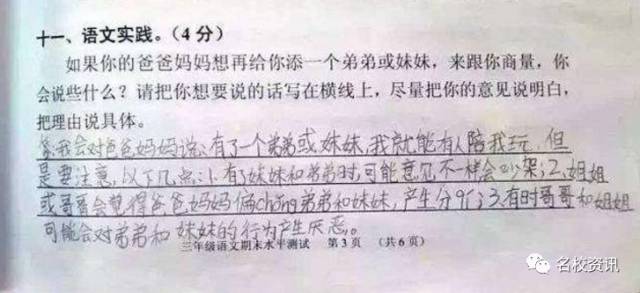 十一、语文实践。（4分）
如果你的爸爸妈妈想再给你添一个弟弟或妹妹，来跟你商量，你
会说些什么？请把你想要说的话写在横线上，尽量把你的意见说明白，
把理由说具体。
我会对爸爸妈妈说：有了一个弟弟或妹妹，我就能有人陪我玩，但
是要注意，以下几点：1、有了妹妹和弟弟时，可能意见不一样会吵架；2、姐姐
或哥哥会觉得爸爸妈妈偏chǒng弟弟和妹妹，产生分歧；3、有时哥哥和姐姐
可能会对弟弟和妹妹的行为产生厌恶。
三年级语文期末水平测试 第3页 （共6页）
名校资讯